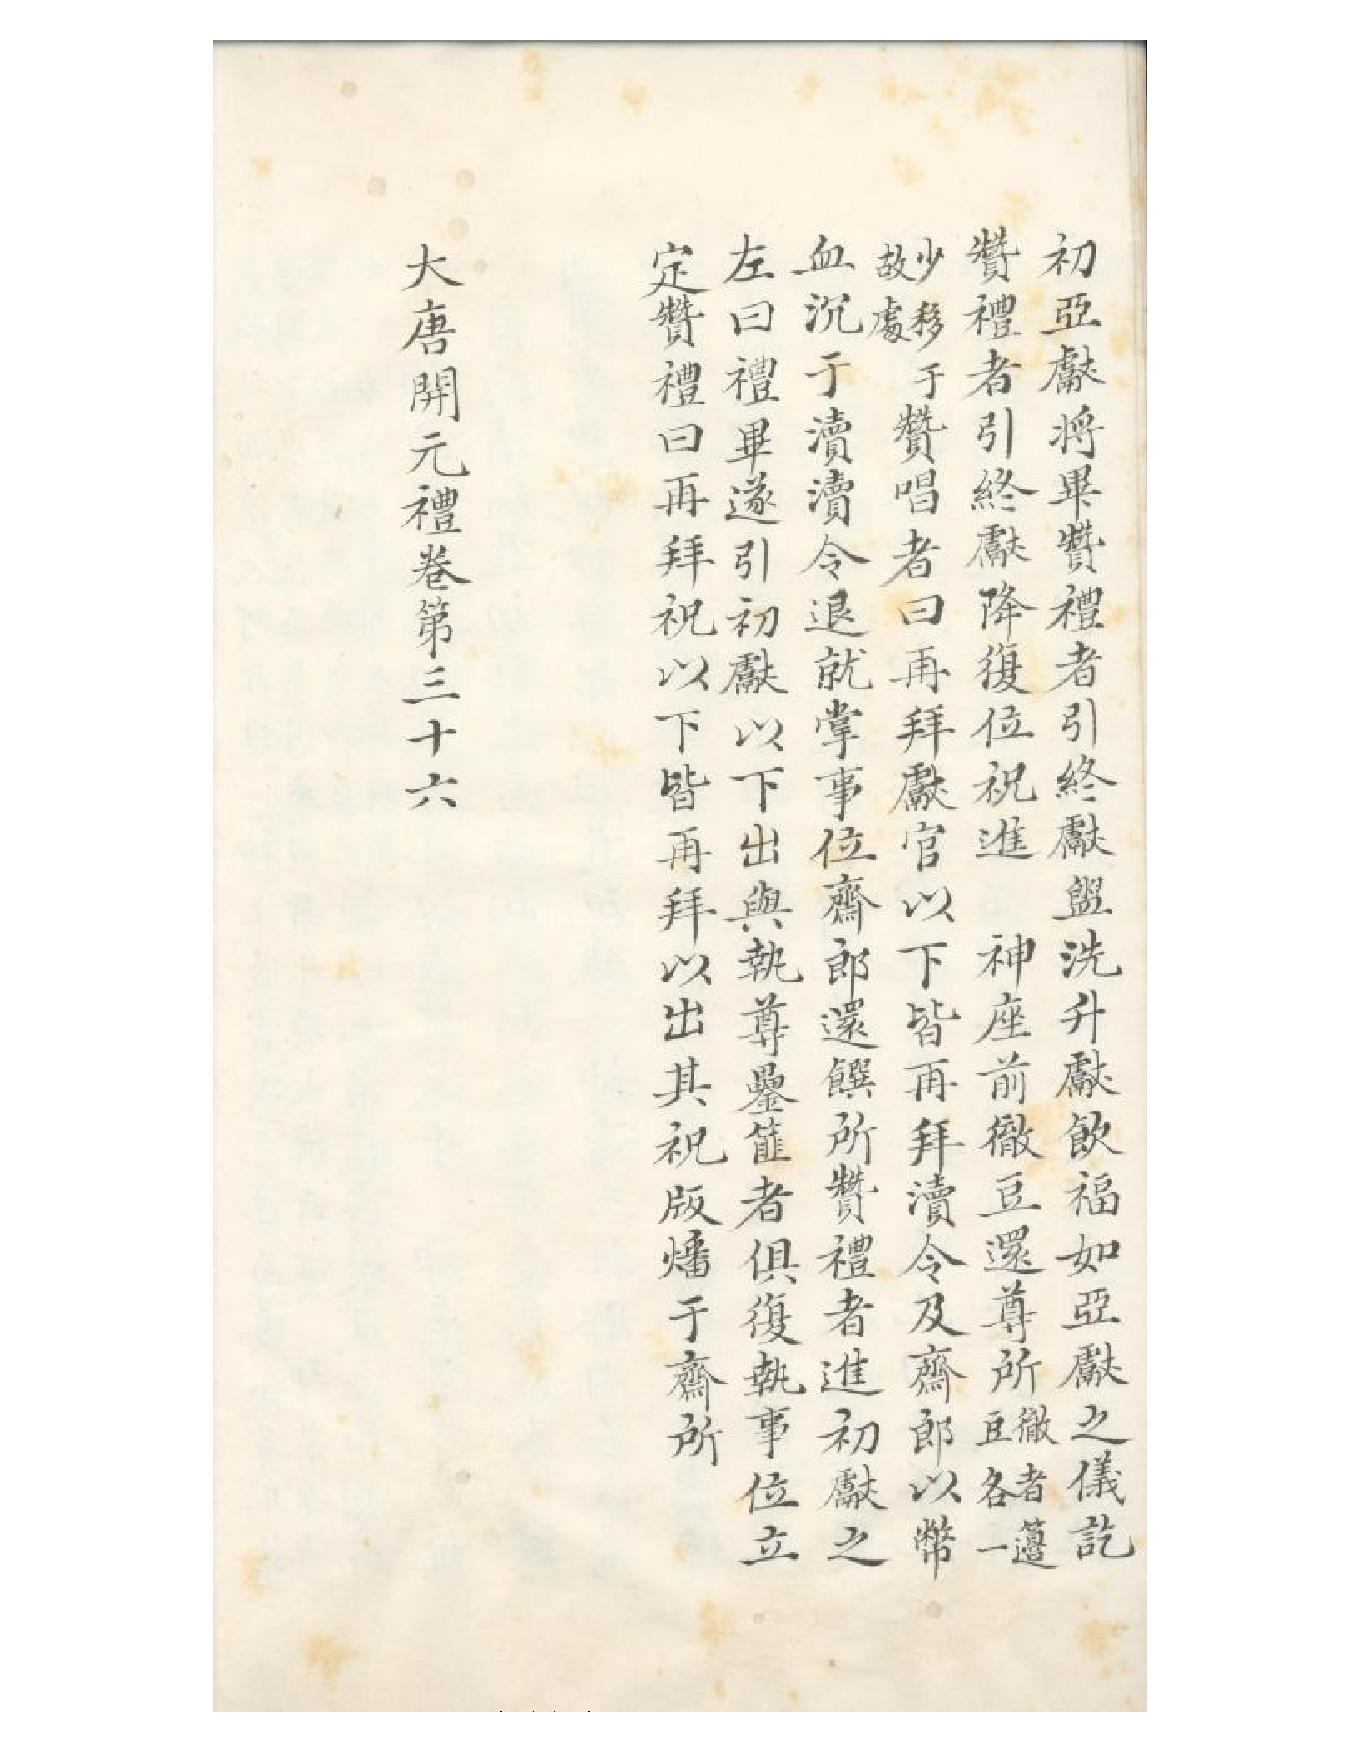 初亞獻將畢贊禮者引終獻盥洗升獻飲福如亞獻之儀訖
贊禮者引終獻降復位祝進 神座前徹豆還尊所徹者籩豆各一
少移于故處贊唱者曰再拜獻官以下皆再拜瀆令及齋郎以幣
血沉于瀆瀆令退就掌事位齋郎還饌所贊禮者進初獻之
左曰禮畢遂引初獻以下出與執尊罍篚者俱復執事位立
定贊禮曰再拜祝以下皆再拜以出其祝版燔于齋所
大唐開元禮卷第三十六